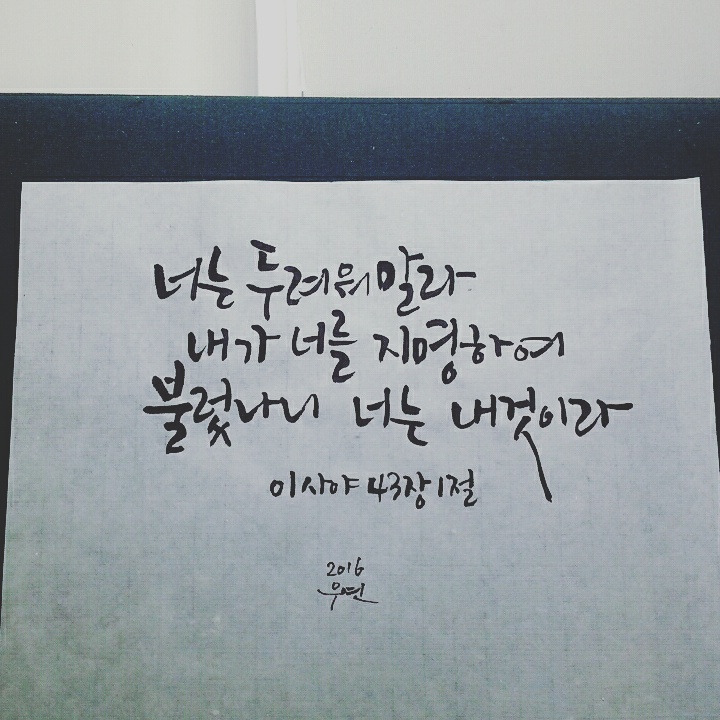 너는 두려워말라
내가 너를 지명하여
불렀나니 너는 내것이라
이사야 43장 1절
2016
우연